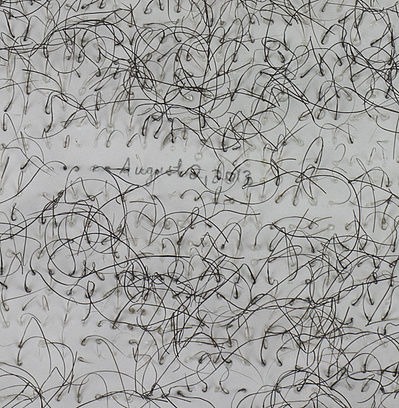 August 8, 2013